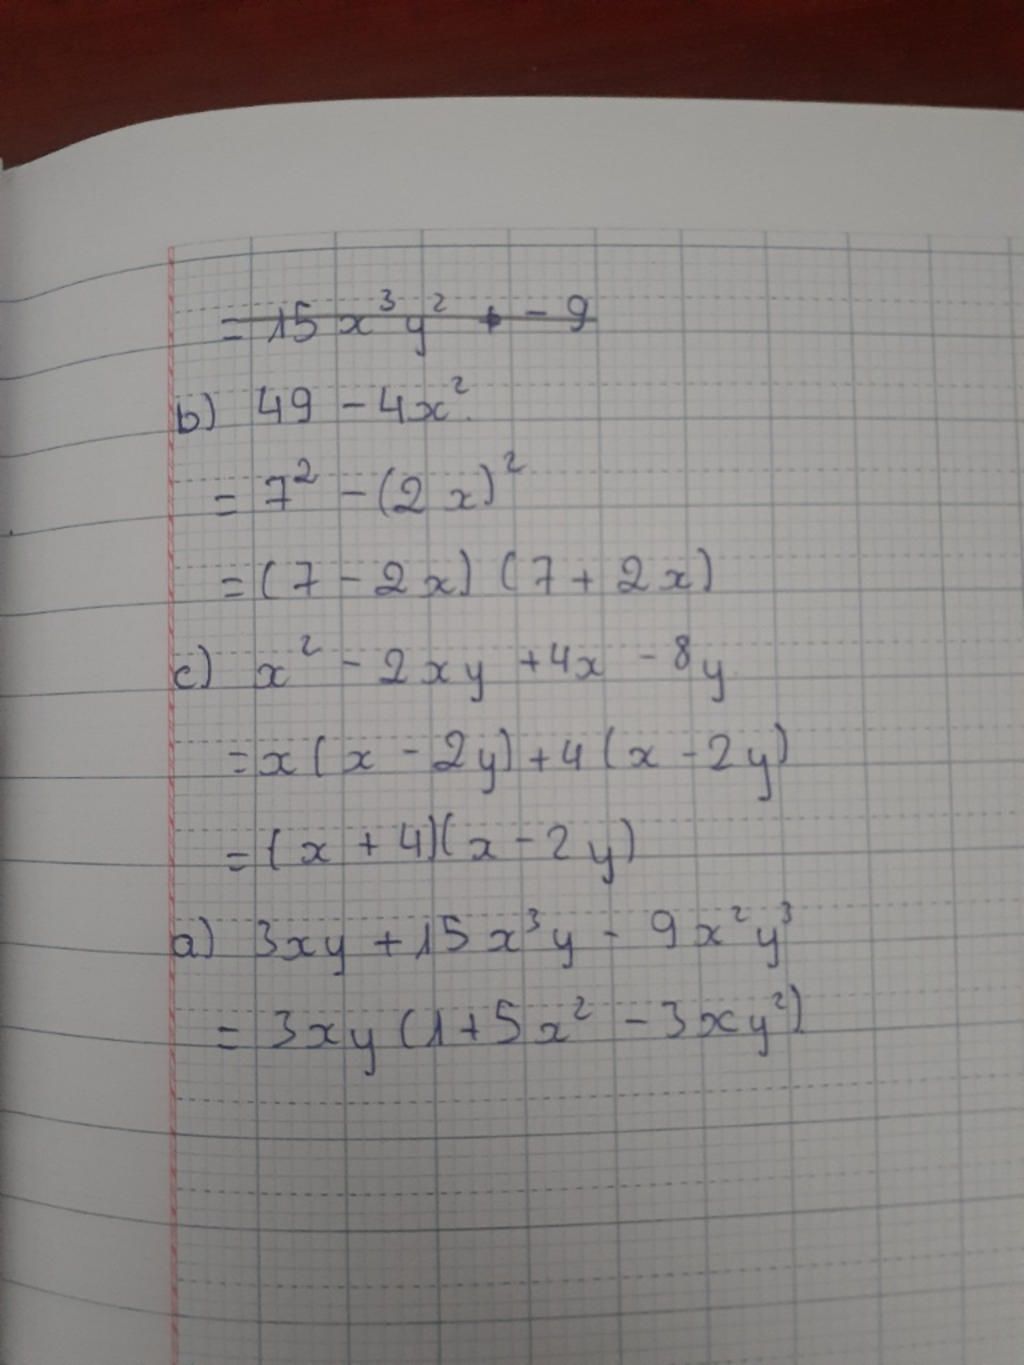 = 15 x³y² + - 9
b) 49 - 4x².
= 7² - (2x)²
= (7 - 2x) (7 + 2x)
c) x² - 2xy + 4x - 8y
= x(x - 2y) + 4(x - 2y)
= (x + 4)(x - 2y)
a) 3xy + 15x³y - 9x²y³
= 3xy (1 + 5x² - 3xy²)